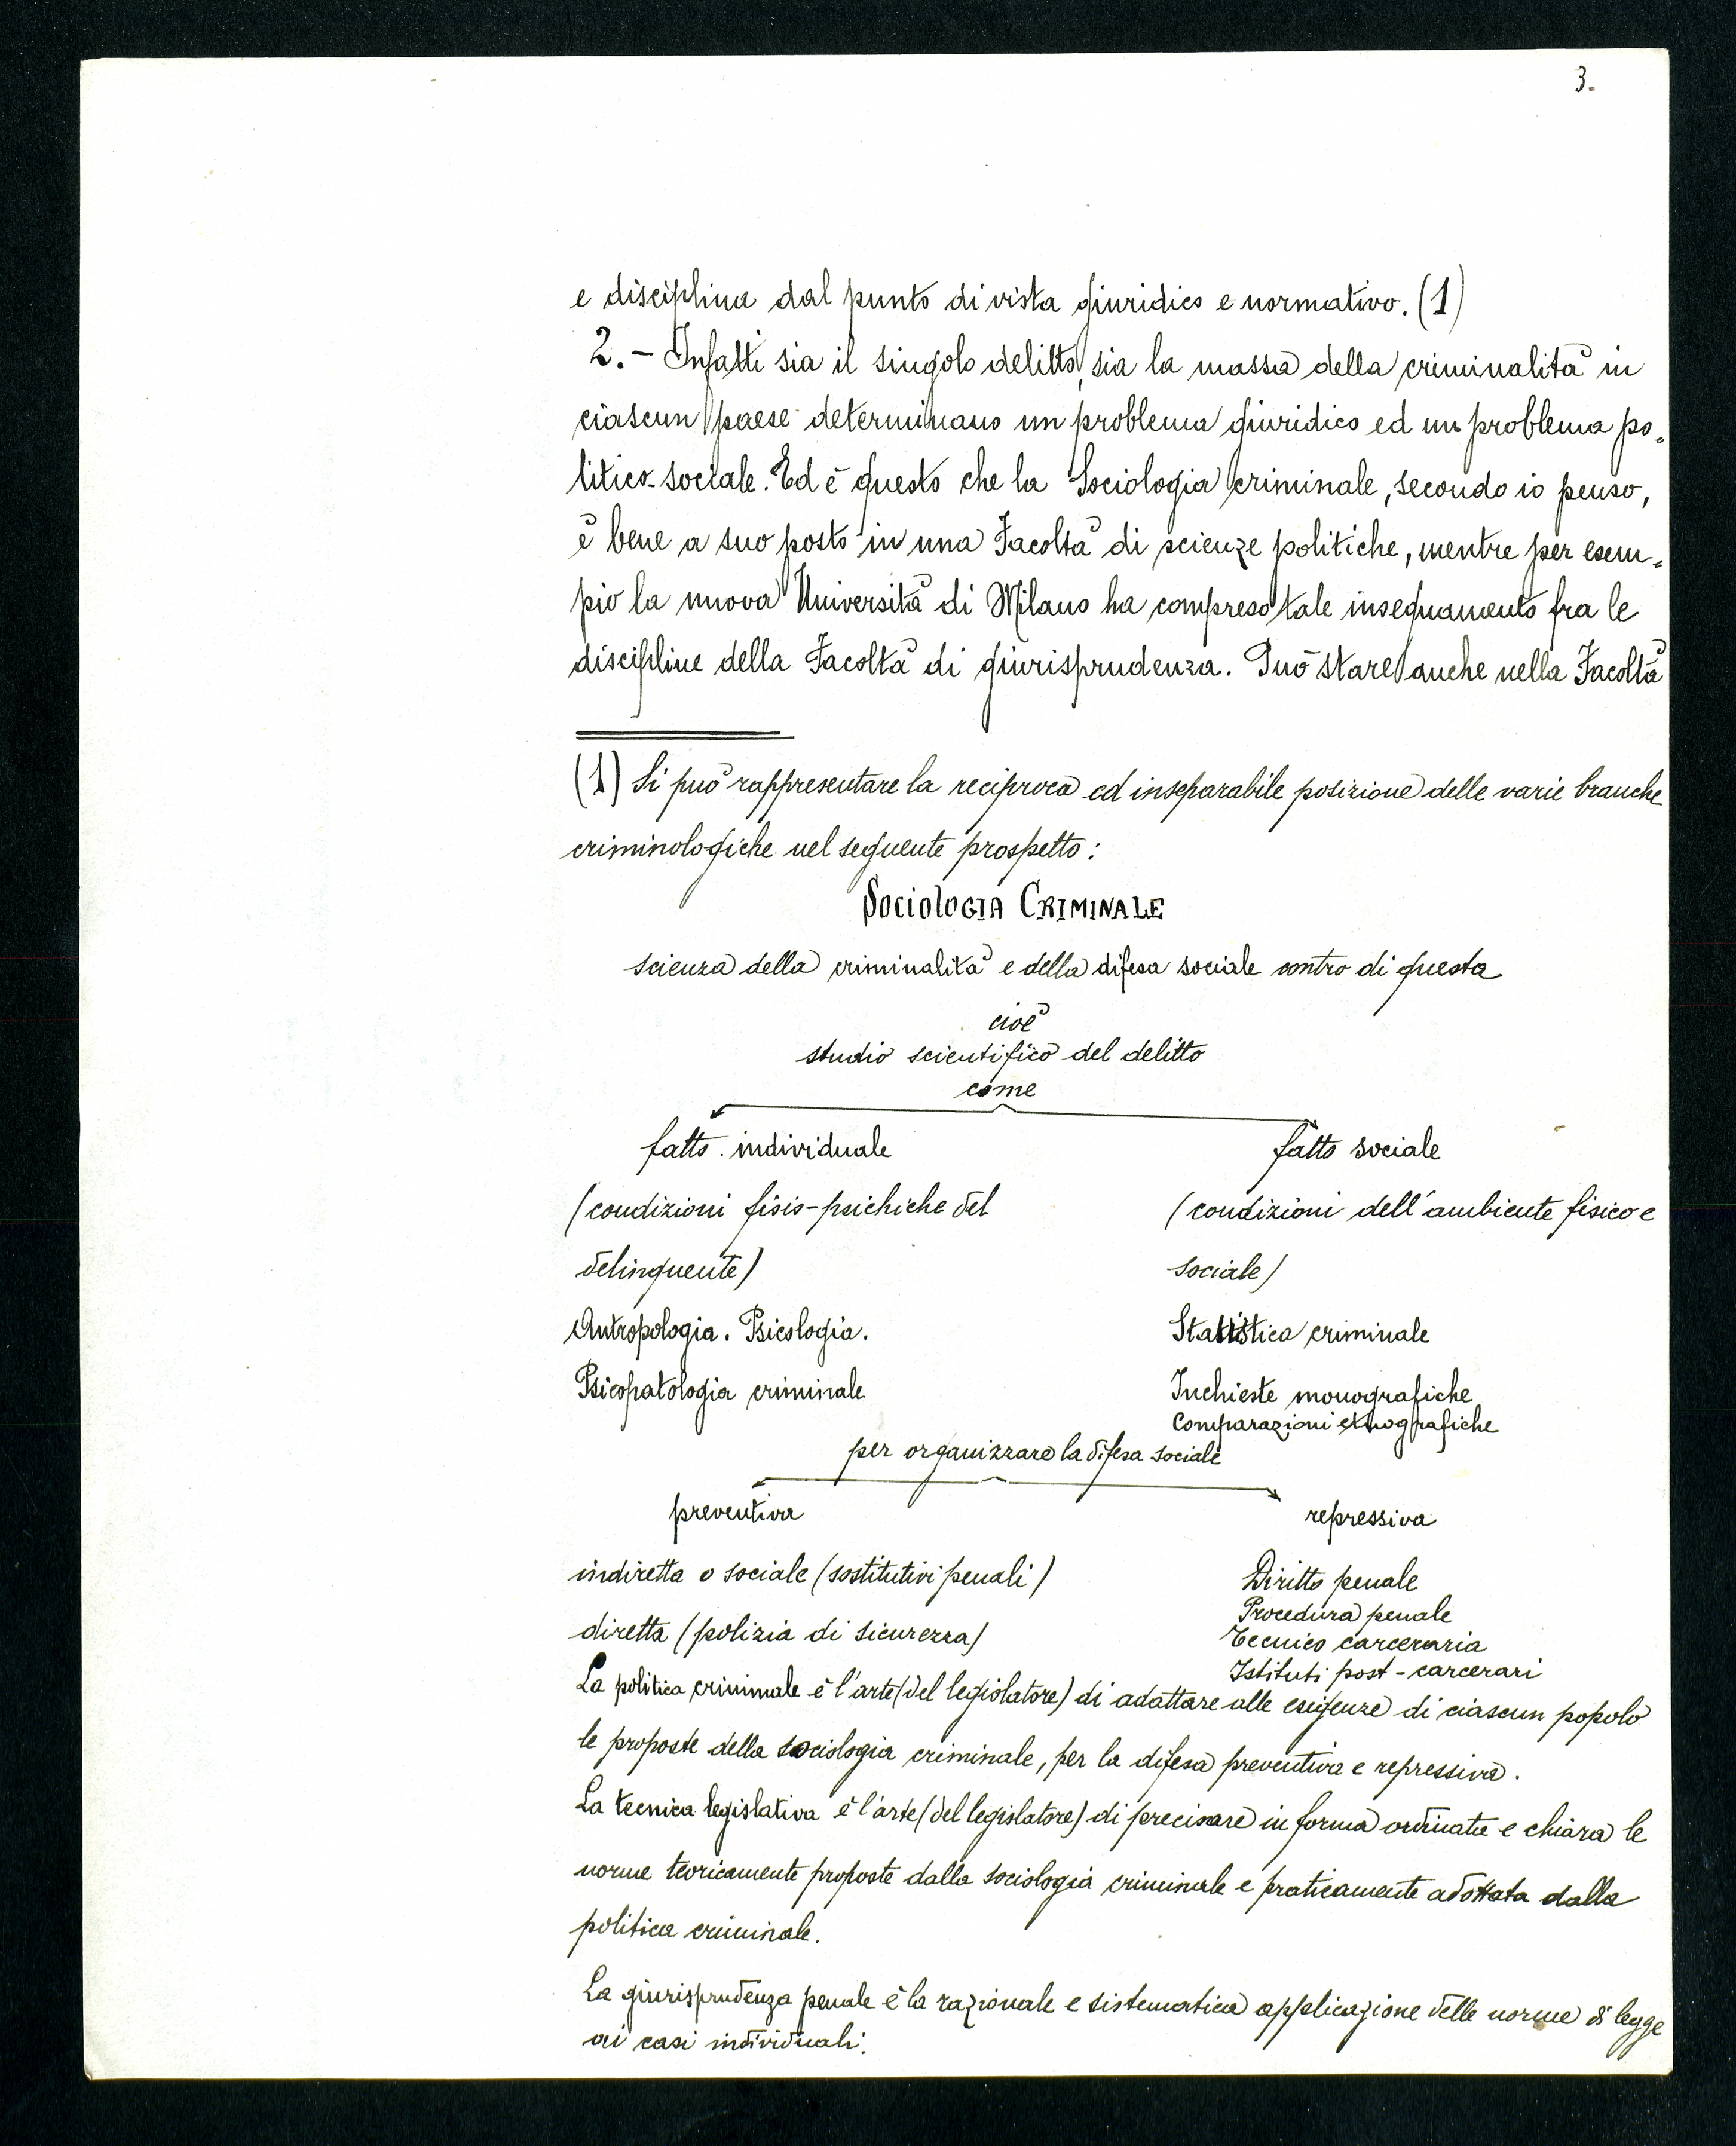 3.
e disciplina dal punto di vista giuridico e normativo. (1)
2.- Infatti sia il singolo delitto, sia la massa della criminalità in
ciascun paese determinano un problema giuridico ed un problema po-
litico-sociale. Ed è questo che la Sociologia criminale, secondo io penso,
è bene a suo posto in una Facoltà di scienze politiche, mentre per esem-
pio la nuova Università di Milano ha compreso tale insegnamento fra le
discipline della Facoltà di giurisprudenza. Può stare anche nella Facoltà
(1) Si può rappresentare la reciproca ed inseparabile posizione delle varie branche
criminologiche nel seguente prospetto:
SOCIOLOGIA CRIMINALE
scienza della criminalità e della difesa sociale contro di questa
cioè
studio scientifico del delitto
come
fatto individuale
(condizioni fisio-psichiche del
delinquente)
Antropologia. Psicologia.
Psicopatologia criminale
fatto sociale
(condizioni dell'ambiente fisico e
sociale)
Statistica criminale
Inchieste monografiche
Comparazioni etnografiche
per organizzare la difesa sociale
preventiva
indiretta o sociale (sostitutivi penali)
diretta (polizia di sicurezza)
repressiva
Diritto penale
Procedura penale
Tecnico carceraria
Istituti post-carcerari
La politica criminale è l'arte (del legislatore) di adattare alle esigenze di ciascun popolo
le proposte della sociologia criminale, per la difesa preventiva e repressiva.
La tecnica legislativa è l'arte (del legislatore) di precisare in forma ordinata e chiara le
norme teoricamente proposte dalla sociologia criminale e praticamente adottata dalla
politica criminale.
La giurisprudenza penale è la razionale e sistematica applicazione delle norme di legge
ai casi individuali.